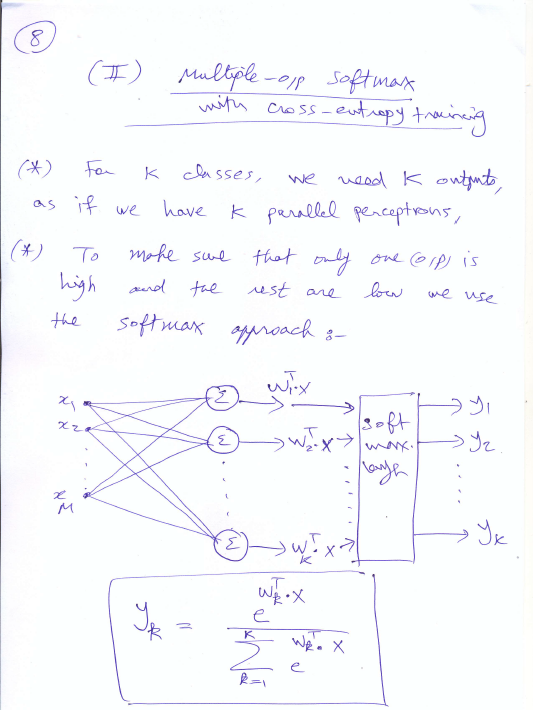 8
(II) Multiple-o/p softmax
with cross-entropy training
(*) For K classes, we need K outputs,
as if we have K parallel perceptrons,
(*) To make sure that only one (o/p) is
high and the rest are low we use
the softmax approach :-
x₁ Σ W₁ᵀ·X y₁
x₂ Σ W₂ᵀ·X soft max. y₂
x_M Σ W_Kᵀ·X y_K
y_k = e^{W_kᵀ·X} / Σ_{k=1}^{K} e^{W_kᵀ·X}